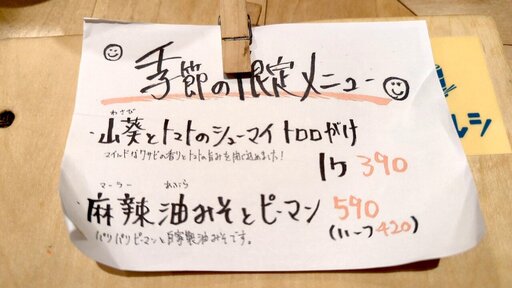 季節の限定メニュー
わさび
・山葵とトマトのシューマイ トロロがけ
マイルドなワサビの香りとトマトの旨みを閉じ込めました！
1ケ 390
マーラー
・麻辣油みそとピーマン 590
パリパリピーマンと自家製油みそです。
(ハーフ420)